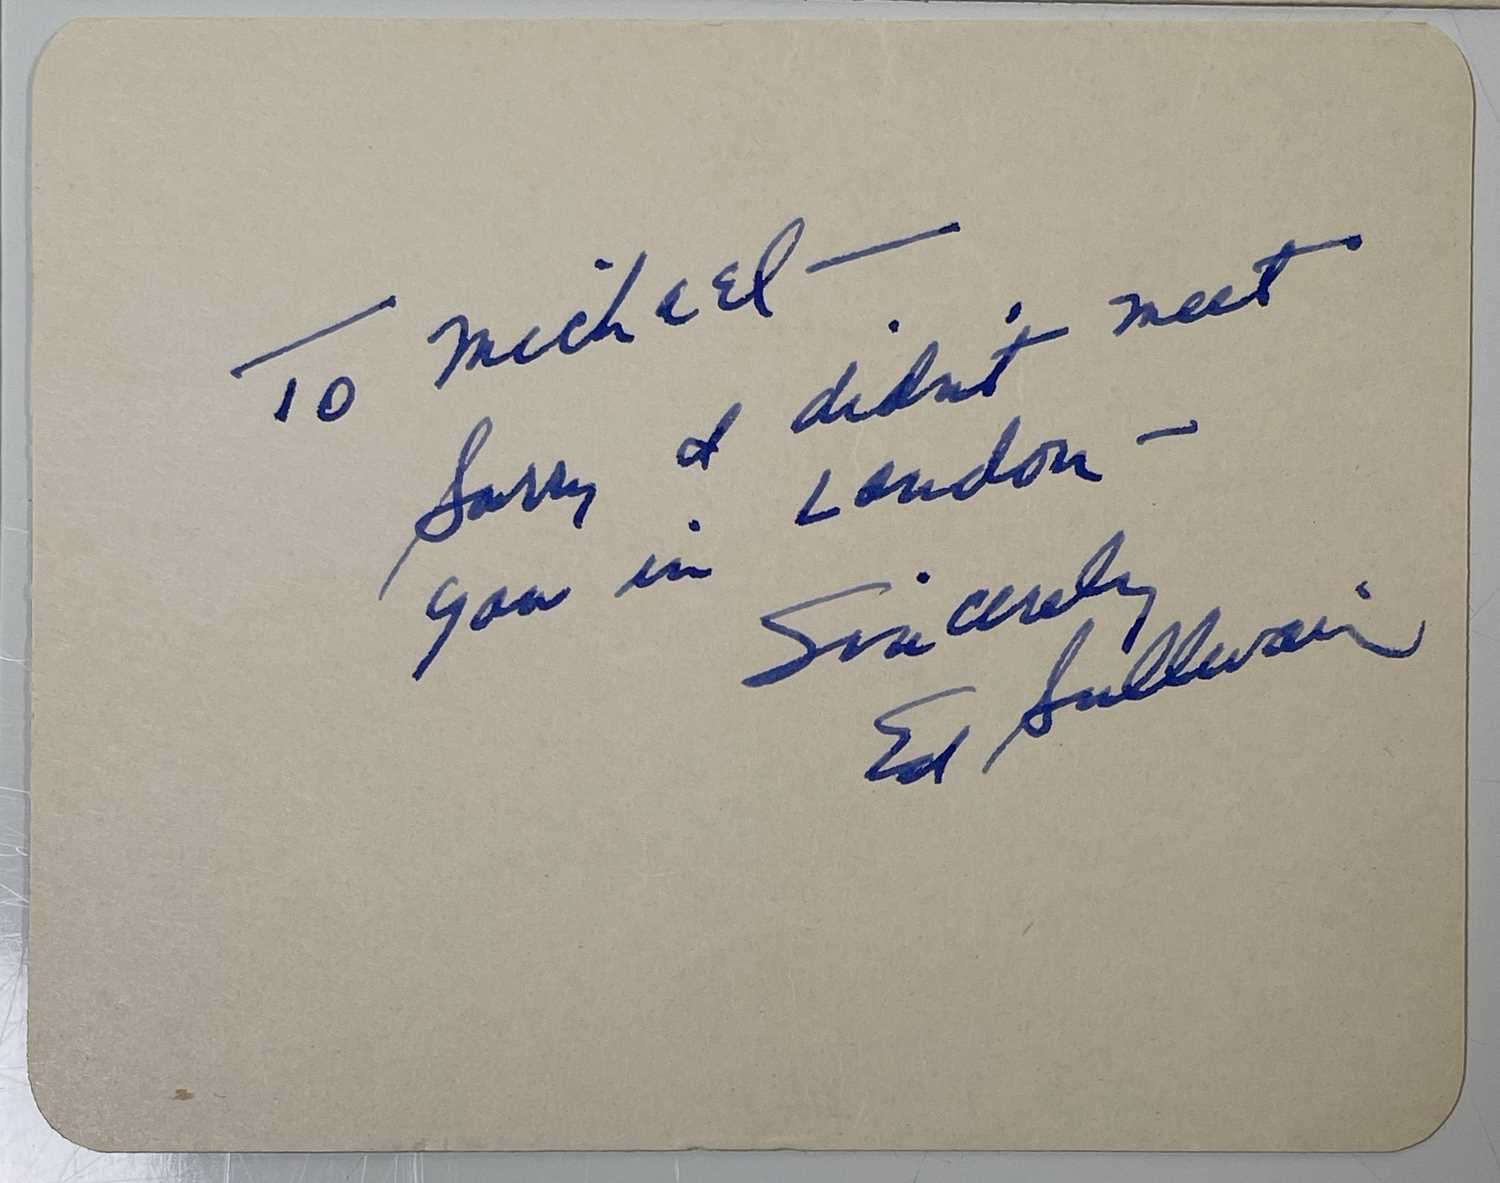 To Michael —
Sorry I didn't meet
you in London —
Sincerely
Ed Sullivan